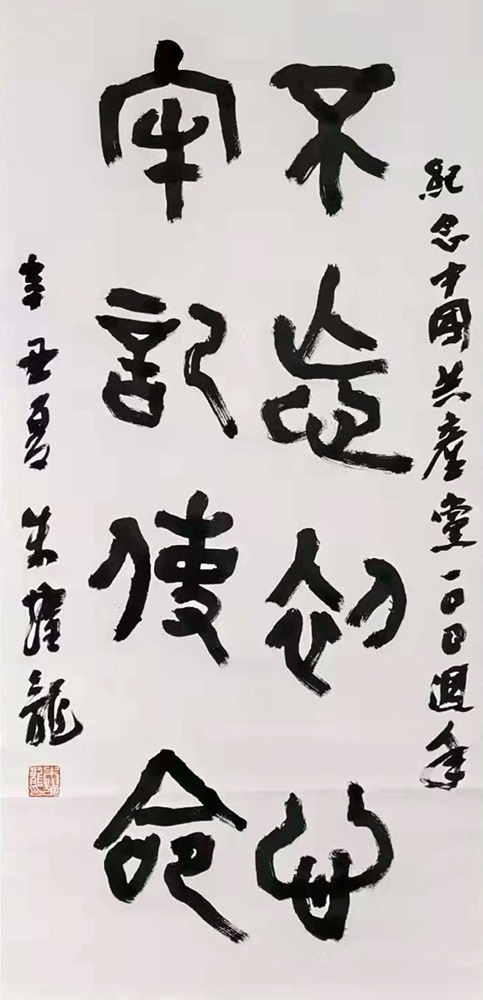 紀念中國共產黨一〇〇週年
不忘初心
牢記使命
辛丑夏 朱 龍